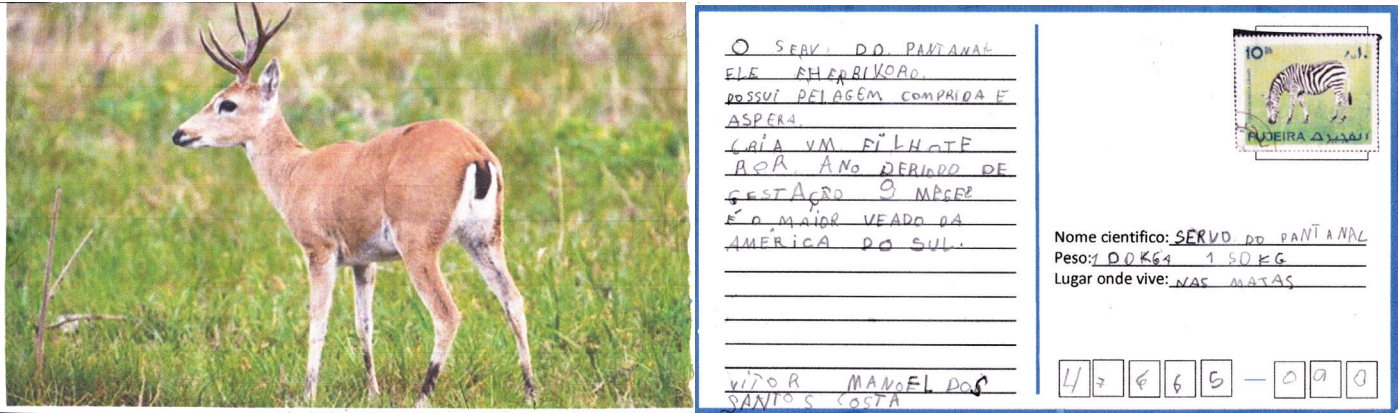 O SERV. DO. PANTANAL
ELE EHERBIVORO.
POSSUI PELAGEM COMPRIDA E
ASPERA.
CRIA UM FILHOTE
POR. ANO PERIODO DE
GESTAÇÃO 9 MESES
É O MAIOR VEADO DA
AMÉRICA DO SUL.
VITOR MANOEL DOS
SANTOS COSTA
10 Dh
FUJEIRA الفجيرة
Nome cientifico: SERVO DO PANTANAL
Peso: 100KGA 150KG
Lugar onde vive: NAS MATAS
47665-090